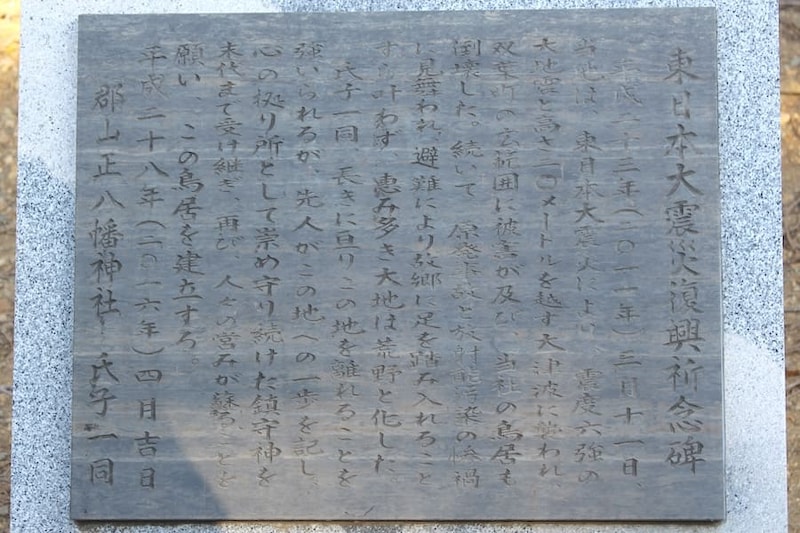 東日本大震災復興祈念碑
平成二十三年(二〇一一年)三月十一日、
当地は、東日本大震災により、震度六強の
大地震と高さ二〇メートルを越す大津波に襲われ、
双葉町の広範囲に被害が及び、当社の鳥居も
倒壊した。続いて、原発事故と放射能汚染の惨禍
に見舞われ、避難により故郷に足を踏み入れること
すら叶わず、恵み多き大地は荒野と化した。
氏子一同、長きに亘りこの地を離れることを
強いられるが、先人がこの地への一歩を記し、
心の拠り所として崇め守り続けた鎮守神を
末代まで受け継ぎ、再び、人々の営みが蘇ることを
願い、この鳥居を建立する。
平成二十八年(二〇一六年)四月吉日
郡山正八幡神社 氏子一同